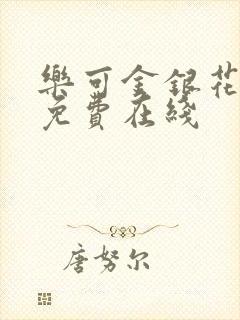 樂可金銀花
免費在綫
唐努尔